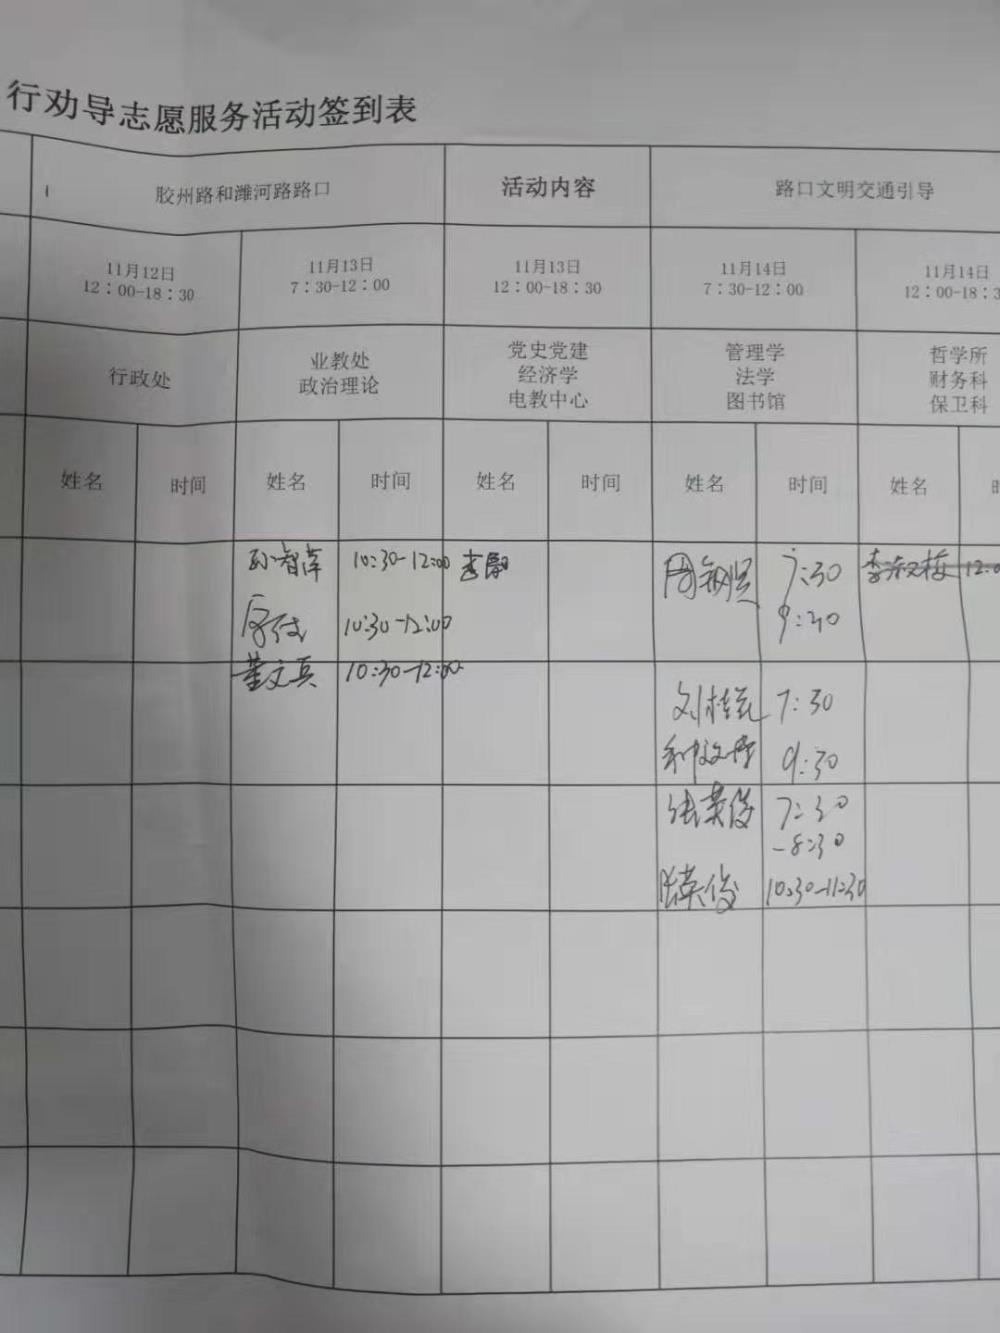 行劝导志愿服务活动签到表
胶州路和潍河路路口 活动内容 路口文明交通引导
11月12日 11月13日 11月13日 11月14日 11月14日
12：00-18：30 7：30-12：00 12：00-18：30 7：30-12：00 12：00-18：3
行政处 业教处 党史党建 管理学 哲学所
政治理论 经济学 法学 财务科
电教中心 图书馆 保卫科
姓名 时间 姓名 时间 姓名 时间 姓名 时间 姓名
孙智萍 10:30-12:00 7:30 李淑梅 12:0
10:30-12:00 9:40
董文兵 10:30-12:00
7:30
9:30
张英俊 7:30
-8:30
张英俊 10:30-11:30